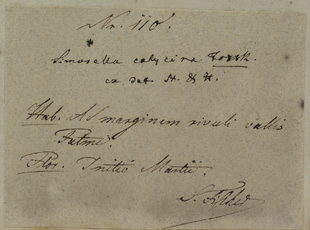 Nr. 110.
Limosella calycina Forsk.
ex det. St. & H.
Hab. Ad marginem rivuli vallis
Fatmé.
Flor. Initio Martii.